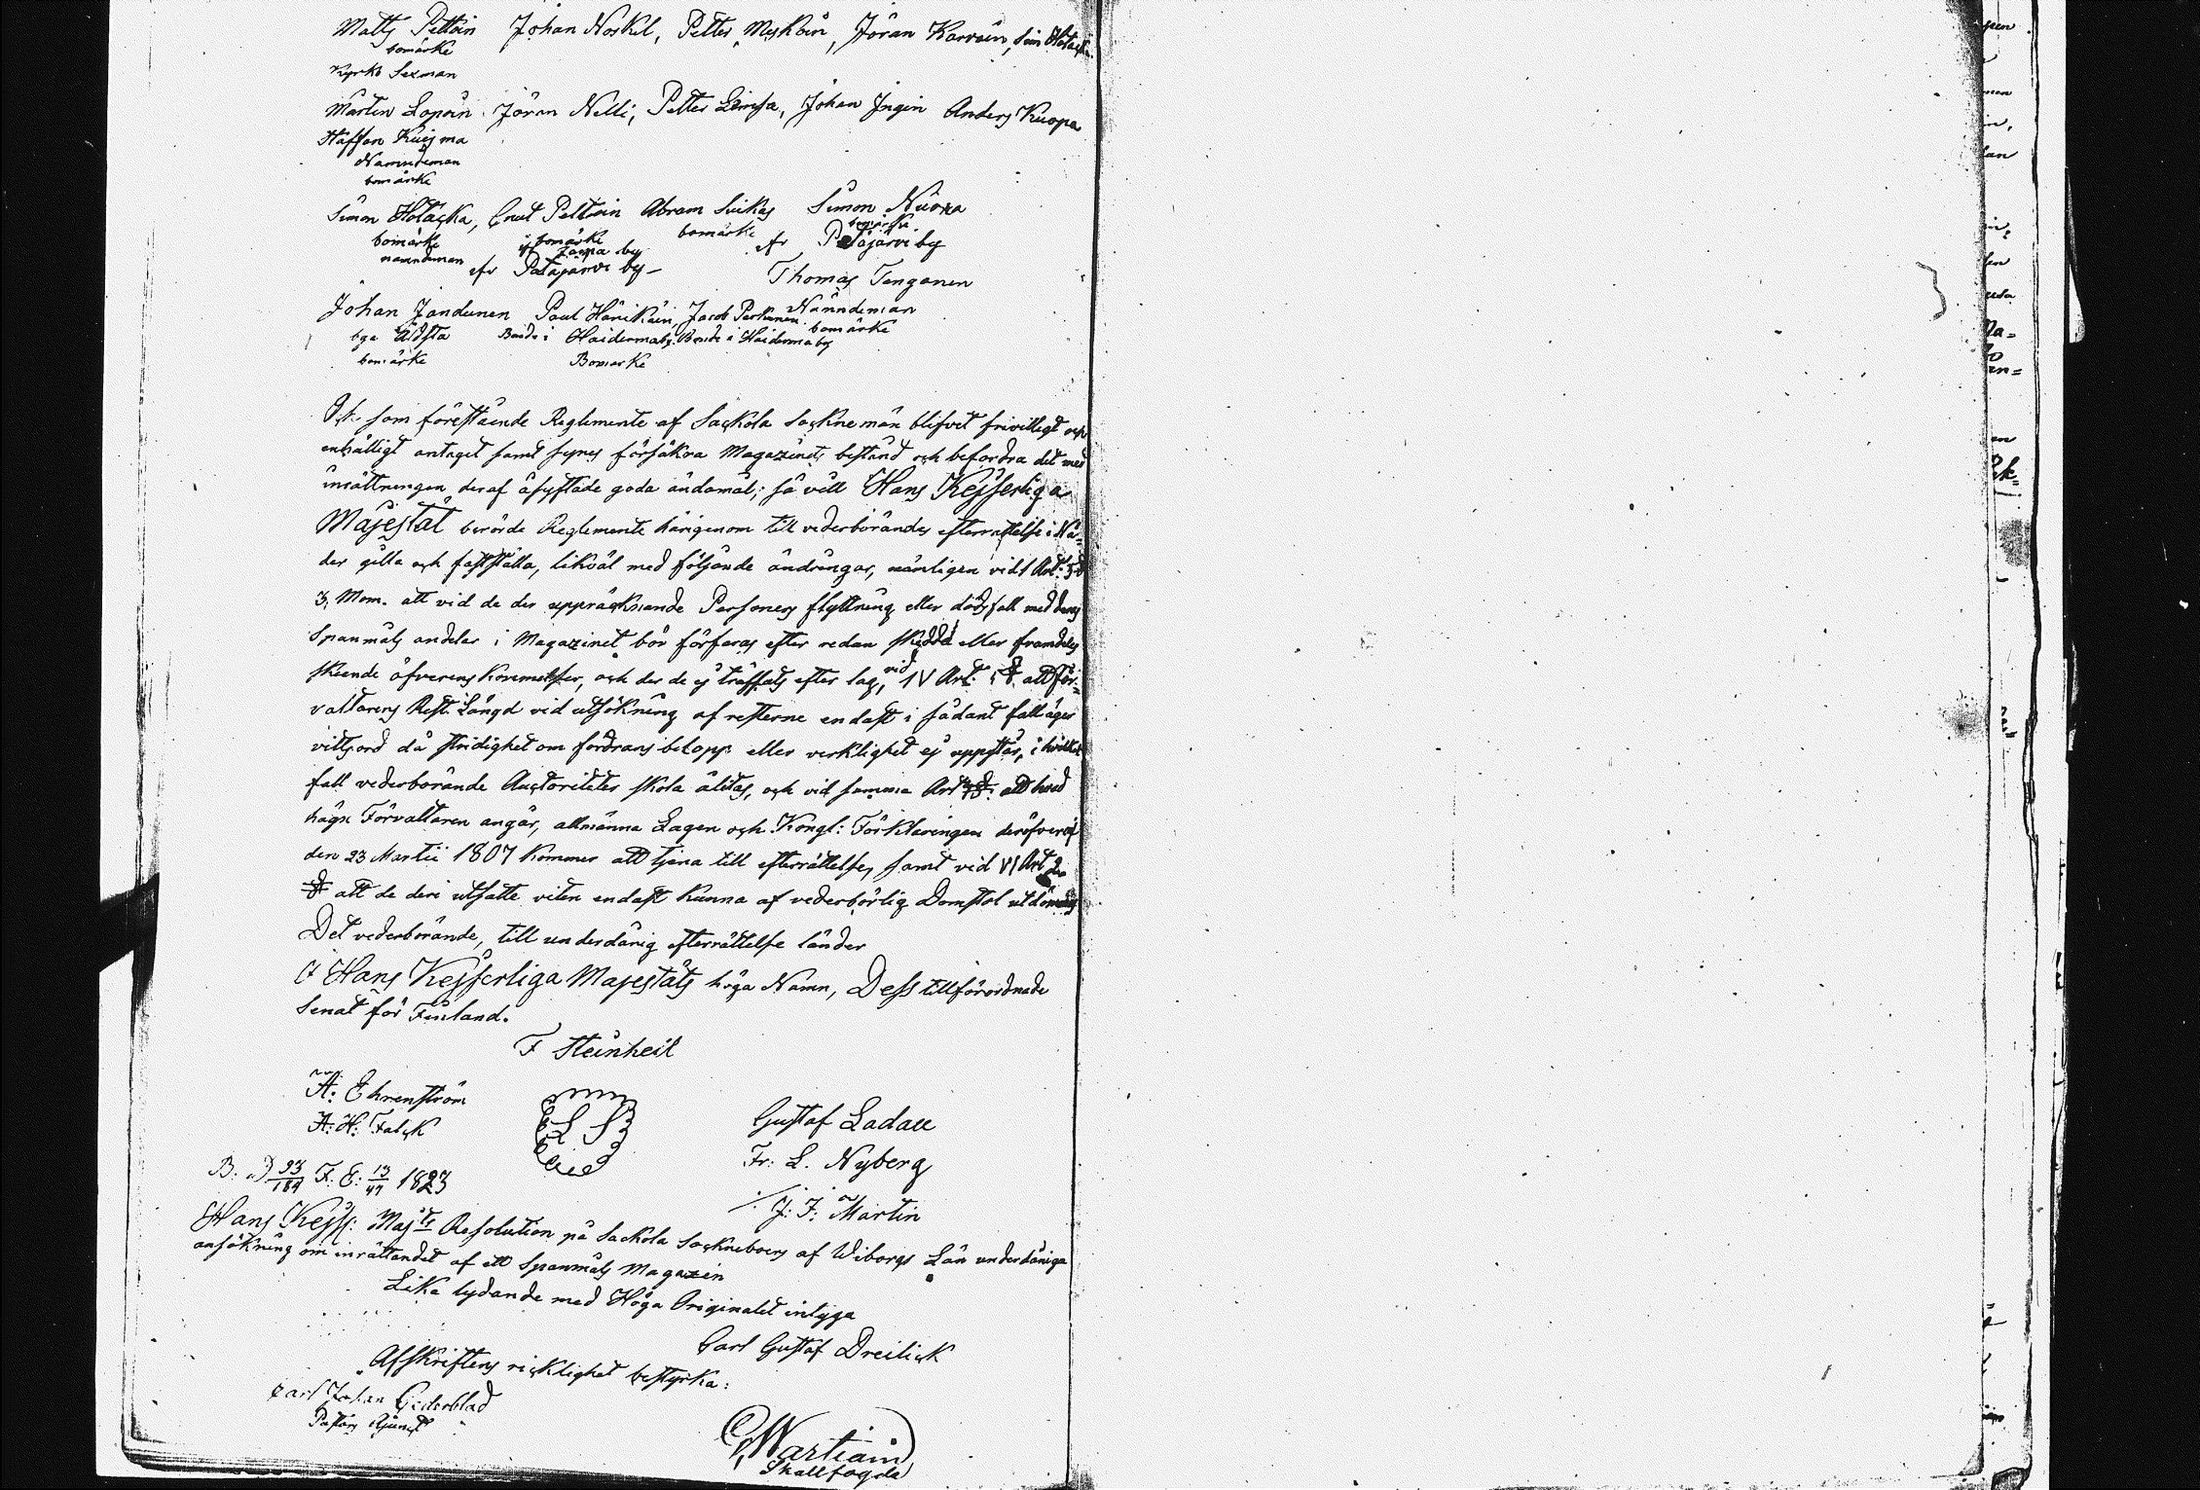 Matts Peltoin Johan Noskel, Petter Myskäin, Jöran Karvain, Sim Hotacka
bomärke
Kyrko Sexman
Mårten Lopoin Jöran Nelli, Petter Lemsa, Johan Ingin Anders Kuopa
Staffan Kuisma
Nämndeman
bomärke
Simon Hotacka, Cnut Peltoin Abram Suikas Simon Nuora
bomärke bomärke bomärke bomärke
nämndeman by af Petäjärvi by
af Petäjärvi by — Thomas Tenganen
Johan Jandunen Paul Hänikäin Jacob Perkunen Nämndeman
bya äldsta Bonde i Haidermaby. Bonde i Haidermaby bomärke
bomärke Bomärke
Och som förestående Reglemente af Sackola Sockne män blifvit frivilligt och
enhälligt antaget samt synes försäkra Magazinets bestånd och befordra det med
inrättningen deraf åsyftade goda ändamål; så vill Hans Kejserliga
Majestät berörde Reglemente härigenom till vederbörandes efterrättelse i Nå-
der gilla och fastställa, likväl med följande ändringar, nämligen vid I Art: 5 §
3 Mom. att vid de der uppräcknande Personers flyttning eller dödsfall med deras
Spanmåls andelar i Magazinet bör förfaras efter redan skedda eller framdeles
skeende öfverens kommelser, och der de ej träffats efter lag, vid IV Art: 5 §. att för-
valtarens Rest Längd vid utsökning af resterne endast i sådant fall äger
vitsord då stridighet om fordrans belopp eller verklighet ej uppstår, i hvilket
fall vederbörande Auctoriteter skola älitas, och vid samma Art §. att hvad
hägn Förvaltaren angår, allmänna Lagen och Kongl: Förklaringen deröfver af
den 23 Martii 1807 kommer att tjena till efterrättelse, samt vid VI Art 2
§ att de deri utsatte viten endast kunna af vederbörlig Domstol utdömas
Det vederbörande, till underdånig efterrättelse länder
I Hans Kejserliga Majestäts höga Namn, Dess tillförordnade
Senat för Finland.
F Steinheil
A: Ehrenström
A: H: Falck
L S
Gustaf Ladau
Fr: L. Nyberg
J: F: Martin
B: D 93/184 F: E: 13/47 1823
Hans Kejss: Majts Resolution på Sackola Socknebors af Wiborgs Län underdåniga
ansökning om inrättandet af ett Spanmåls Magazin
Lika lydande med Höga Originalet intyga
Carl Gustaf Dreilick
Afskriftens ricklighet bestyrka:
Carl Johan Cederblad
Pastors Adjunct
Wartiain
Skallfogde